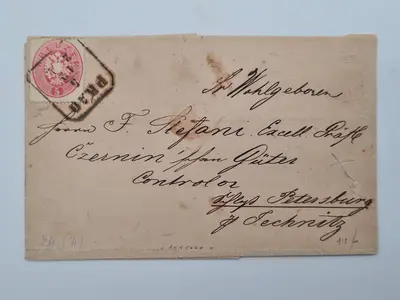 PRAG
Sr Wohlgeboren
Herrn F. Stefani, Excell Gräfl
Czernin'schen Güter
Controlor
Schloß Petersburg
p Jechnitz